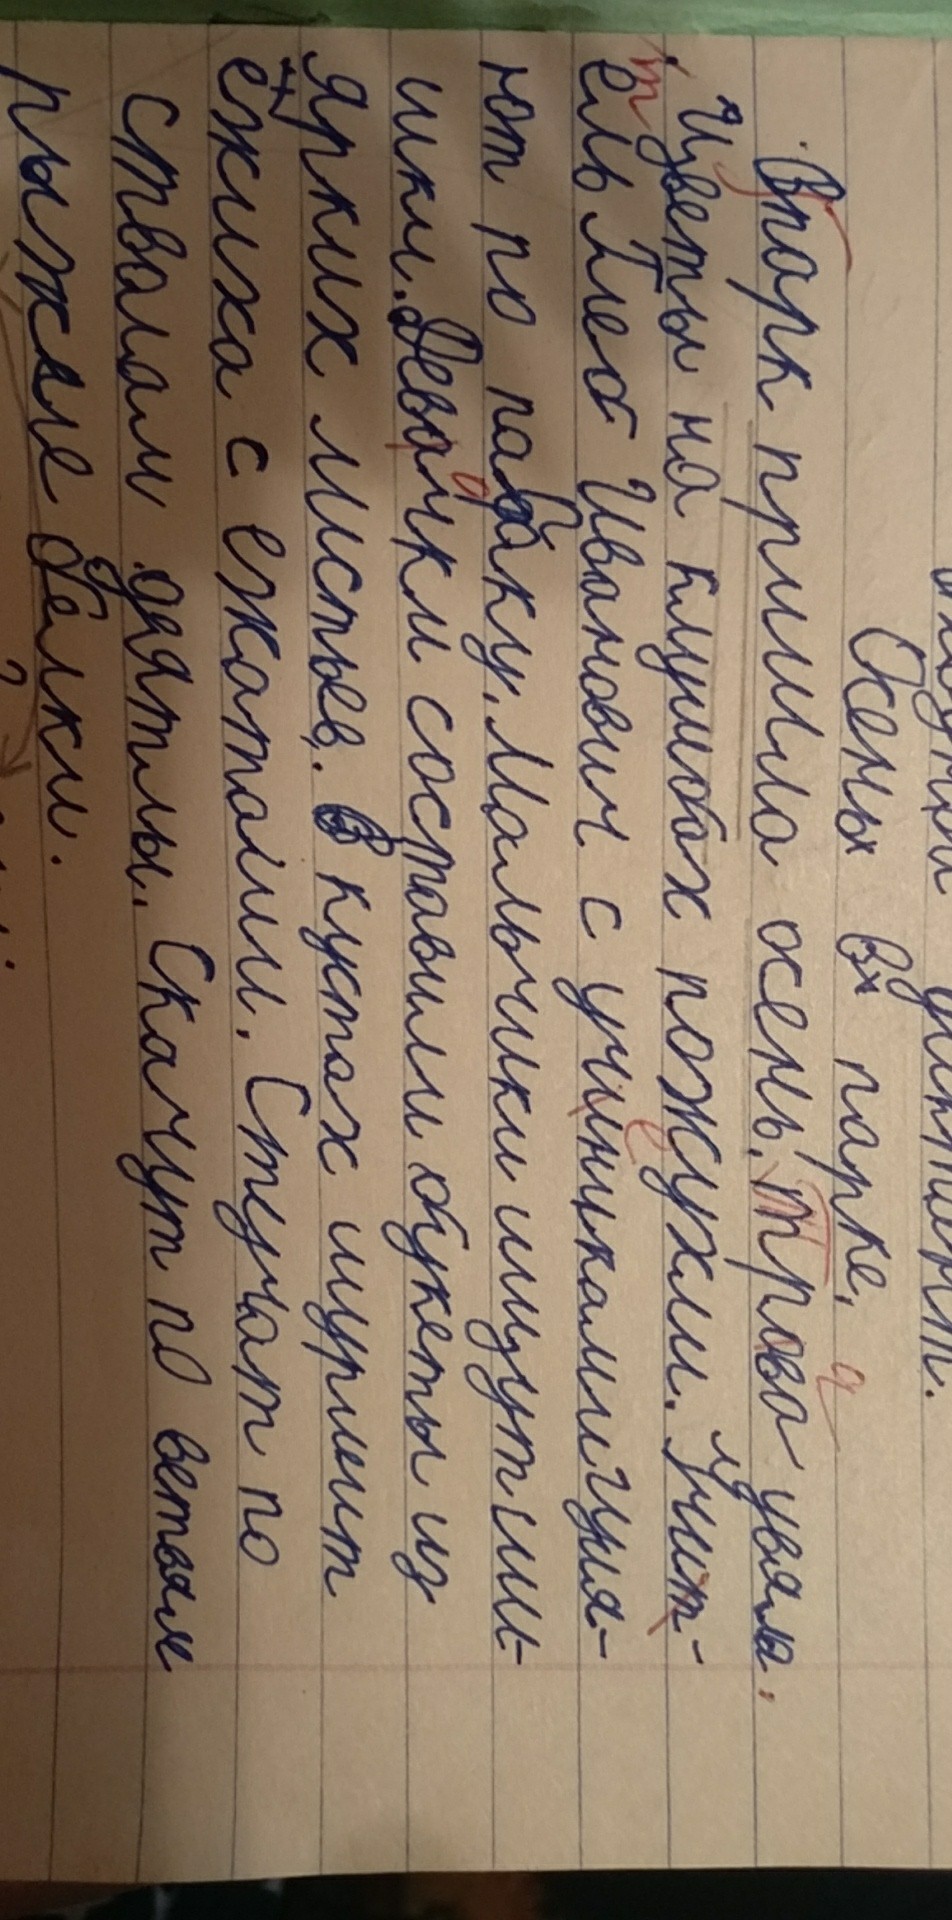 Осень в парке.
Впарк пришла осень. трова увяла.
Цветы на клумбах пожухли. Учит-
ель Глеб Иванович с учиниками гуля-
ют по парку. Мальчики ищут ши-
шки. Девачки составили букеты из
ярких листьев. В кустах шуршит
ежиха с ежатами. Стучат по
стволам дятлы. Скачут по ветвям
рыжие белки.